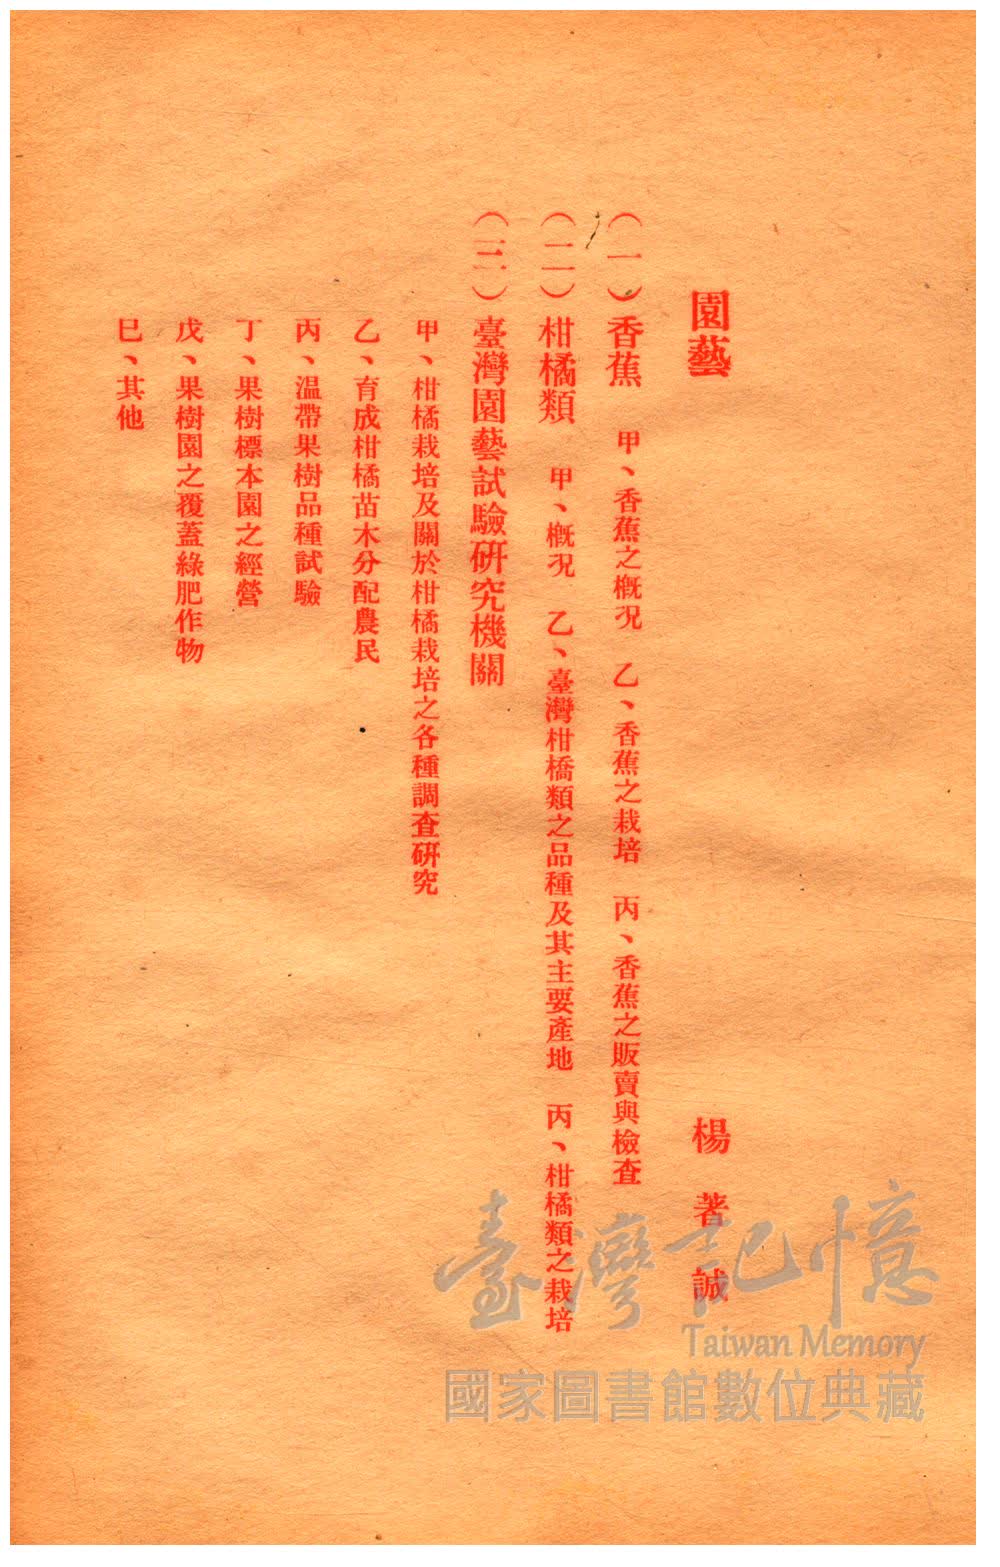 園藝　楊著誠
（一）香蕉　甲、香蕉之概況　乙、香蕉之栽培　丙、香蕉之販賣與檢查
（二）柑橘類　甲、概況　乙、臺灣柑橋類之品種及其主要產地　丙、柑橘類之栽培
（三）臺灣園藝試驗研究機關
甲、柑橘栽培及關於柑橘栽培之各種調查研究
乙、育成柑橘苗木分配農民
丙、溫帶果樹品種試驗
丁、果樹標本園之經營
戊、果樹園之覆蓋綠肥作物
巳、其他
臺灣記憶
Taiwan Memory
國家圖書館數位典藏